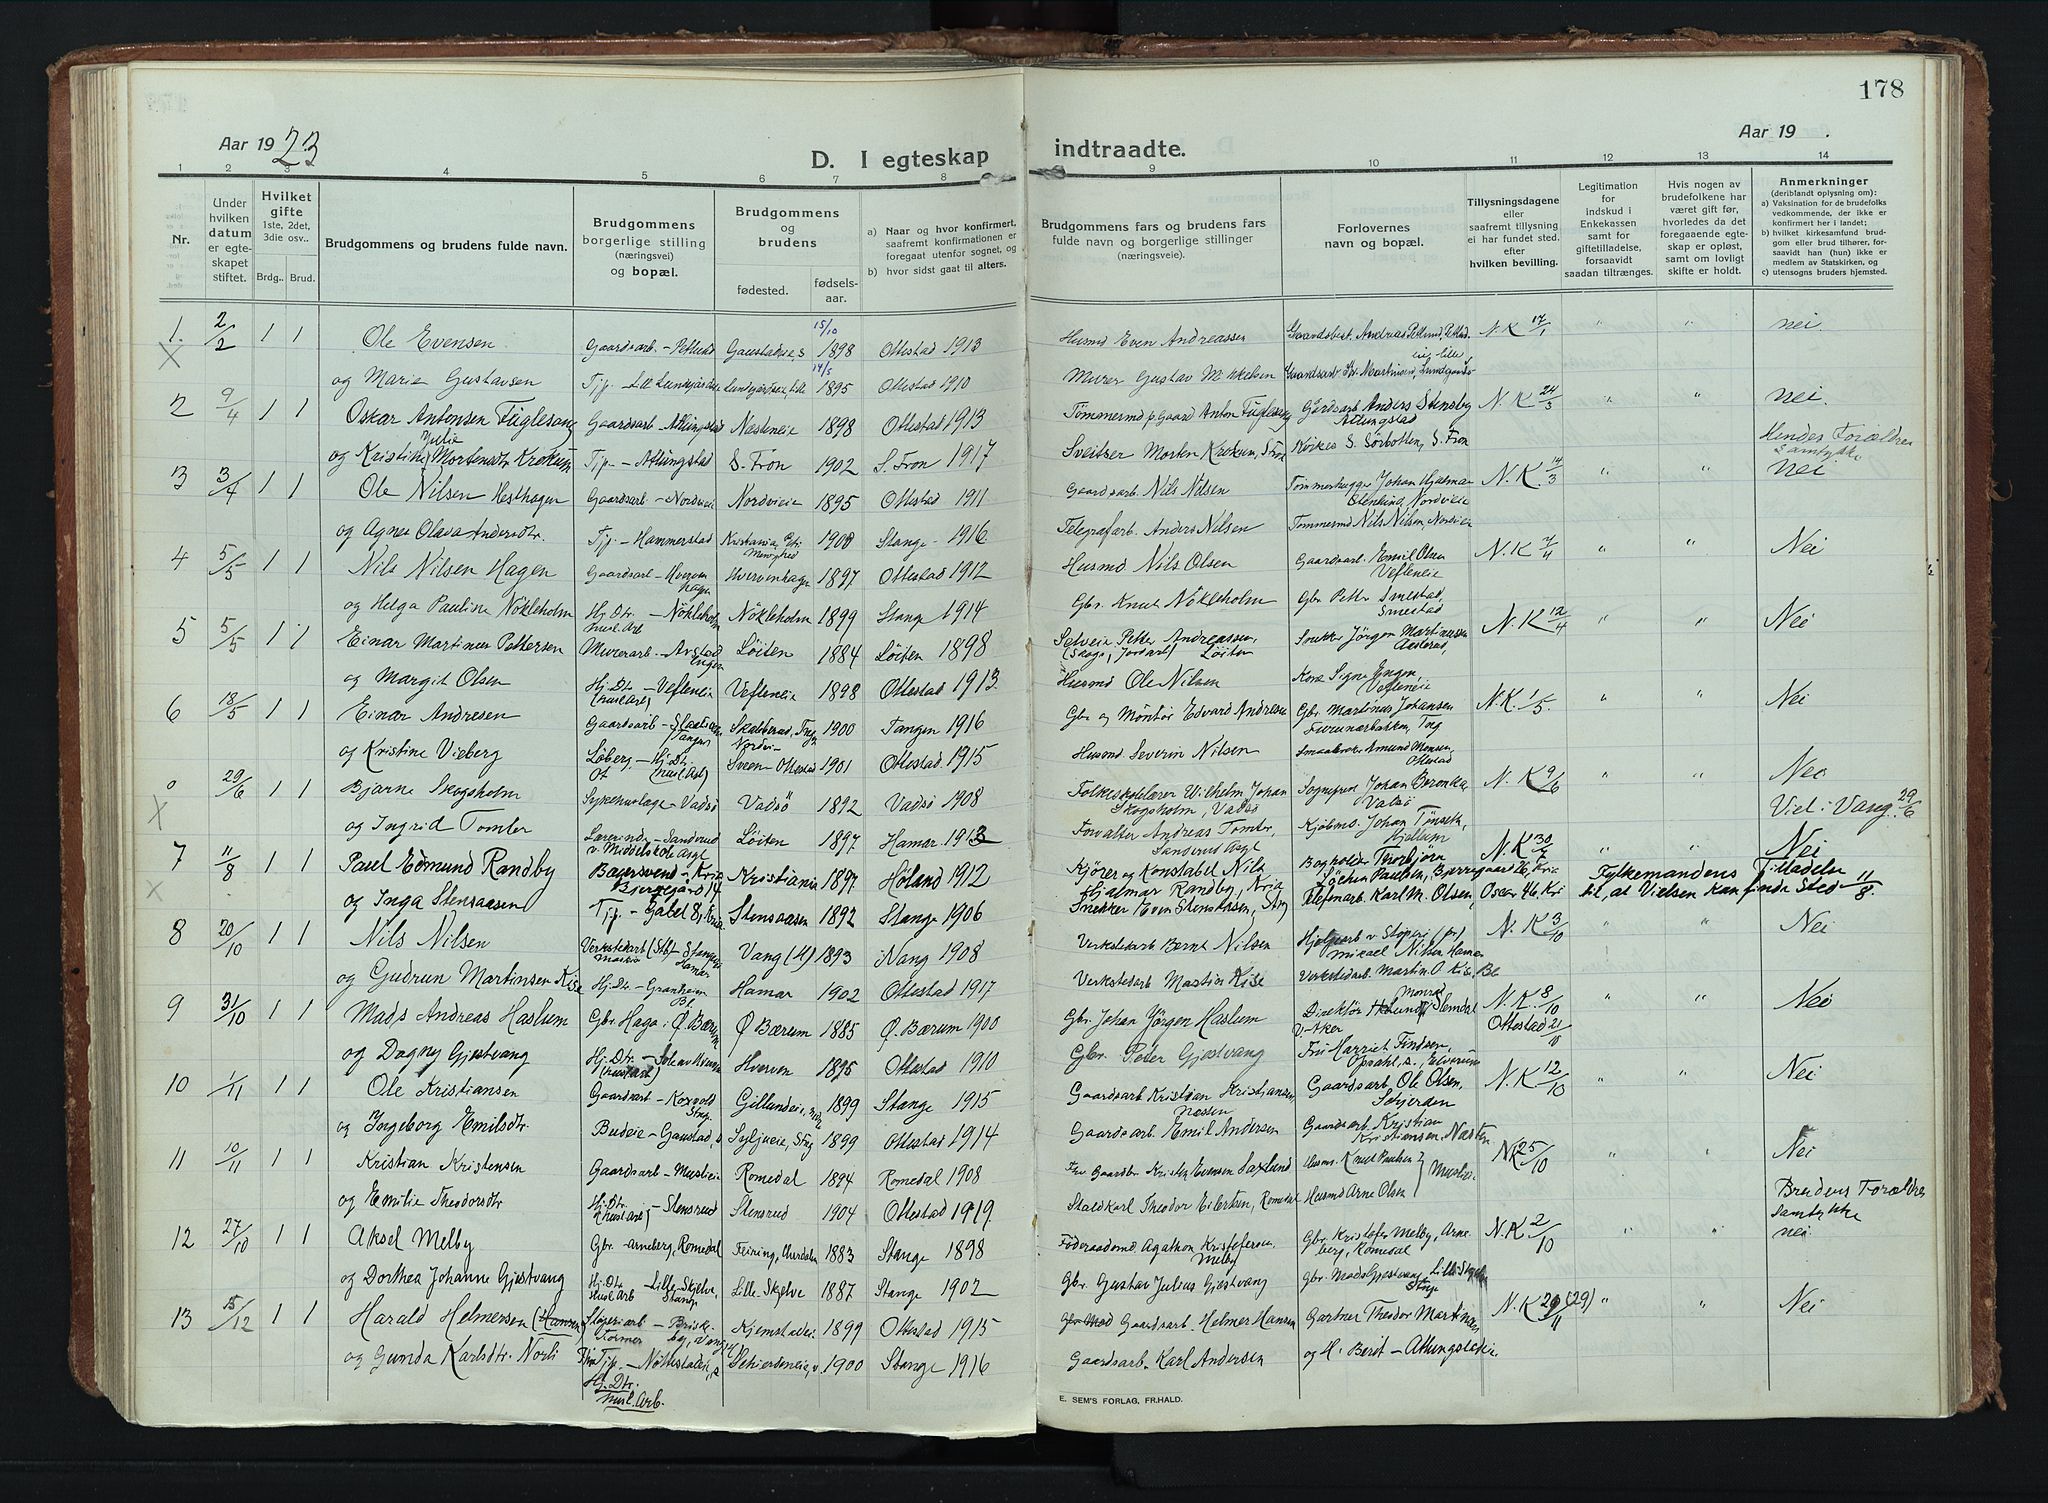 178
Aar 1923
Aar 19 .
D. I egteskap indtraadte.
1 2 3 4 5 6 7 8 9 10 11 12 13 14
Nr.
Under hvilken datum er egteskapet stiftet.
Hvilket gifte 1ste, 2det, 3die osv.. Brdg.. Brud.
Brudgommens og brudens fulde navn.
Brudgommens borgerlige stilling (næringsvei) og bopæl.
Brudgommens og brudens fødested. fødselsaar.
a) Naar og hvor konfirmert, saafremt konfirmationen er foregaat utenfor sognet, og
b) hvor sidst gaat til alters.
Brudgommens fars og brudens fars fulde navn og borgerlige stillinger (næringsveie).
Forlovernes navn og bopæl.
Tillysningsdagene eller saafremt tillysning ei har fundet sted, efter hvilken bevilling.
Legitimation for indskud i Enkekassen samt for giftetilladelse, forsaavidt saadan tiltrænges.
Hvis nogen av brudefolkene har været gift før, hvorledes da det foregaaende egteskap er opløst, samt om lovligt skifte er holdt.
Anmerkninger (deriblandt oplysning om):
a) Vaksination for de brudefolks vedkommende, der ikke er konfirmert her i landet;
b) hvilket kirkesamfund brudgom eller brud tilhører, forsaavidt han (hun) ikke er medlem av Statskirken, og
c) utensogns bruders hjemsted.
1. 2/2 1 1 Ole Evensen Gaardsarb - Petlund 15/10 1898 Ottestad 1913 Husmd Even Andreassen N. K 17/1 " " nei
X og Marie Gustavsen 14/5 1895 Ottestad 1910 Murer Gustav Mikkelsen
2 9/4 1 1 Oskar Antonsen Fuglesang Gaardsarb - Atlungstad Næsteneie 1898 Ottestad 1913 Tömmermd p. Gaard Anton Fuglesang Gardsarb Anders Stensby Atlungstad N. K 24/3 " " nei.
og Kristine Julie Mortensdtr Krokum Tjp. - Atlungstad S. Fron 1902 S. Fron 1917 Sveitser Morten Krokum, S. Fron Hendes Forældres Samtykke
3 3/4 1 1 Ole Nilsen Hesthagen Gaardsarb - Nordvieie Nordvieie 1895 Ottestad 1911 Gaardsarb Nils Nilsen Tommerhugger Johan Hjalmar N. K 14/3 " " nei
og Agnes Olava Andersdtr. Tjp - Hammerstad 1900 Stange 1916 Telegrafarb. Anders Nilsen Tommermd Nils Nilsen, Nordvieie
4 5/5 1 1 Nils Nilsen Hagen Gaardsarb - Hverven hagen Hvervenhagen 1897 Ottestad 1912 Husmd Nils Olsen Gaardsarb. Emil Olsen Vefleneie N. K 7/4 " " Nei
og Helga Pauline Nökleholm Hj. Dtr. - Nökleholm husl. Arb Nökleholm 1899 Stange 1914 Gbr. Knut Nökleholm Gbr Petter Smestad, Smestad
5 5/5 1 1 Einar Martinus Pettersen Murerarb - Löiten 1884 Löiten 1898 Selveier Petter Andreassen, (Skogs, Jordarb) Löiten Snekker Jörgen Martinussen N. K 12/4 " " Nei
og Margit Olsen Hj. Dtr. (husl. Arb) - Vefleneie Vefleneie 1898 Ottestad 1913. Husmd Ole Nilsen Vefleneie
6 13/5 1 1 Einar Andresen Gaardsarb - Tangen 1900 Tangen 1916 Gbr og Montör Edvard Andresen Gbr. Martinus Johansen N. K. 1/5. " " Nei
og Kristine Vieberg Löberg - Hj. Dtr. Ot (husl. Arb) Sveen - Ottestad 1901 Ottestad. 1915 Husmd Severin Nilsen Smaabruker Amund Monsen, Ottestad
0 29/6 1 1 Bjarne Skogsholm Sykehuslæge - Vadsö Vadsö 1892 Vadsö 1908 Folkeskolelærer Wilhelm Johan Skogsholm, Vadsö Sogneprest Johan Beronka Vadsö N. K 9/6 " " Nei
X og Ingrid Tomter Lærerinde - Sanderud v. Middelskole Asyl Löiten 1897 Hamar 1913 Forvalter Andreas Tomter, Sanderud Asyl Kjöbmd. Johan Tönseth, Hjellum Viet i Vang 29/6
7 11/8 1 1 Paul Edmund Randby Bagersvend - Kria Bjerregård 14 Kristiania 1897 Höland 1912 Kjörer og Konstabel Nils Hjalmar Randby, Kria Bogholder Thorbjörn Paulsen, Bjerregaard 26, Kria N. K 30/7 " " Nei
X og Inga Stensaasen Tjp - Gabel 8, Kria Stensaasen 1892 Stange 1906 Snekker Even Stensaasen, Stg Telefonarb. Karl M. Olsen, Oscar 46 Kri Fylkemandens Tilladelse til, at Vielsen kan finde Sted 11/8.
8 20/10 1 1 Nils Nilsen Verkstedarb Vang (H) 1893 Vang 1908 Verkstedarb Bernt Nilsen Hjelpearb v. Stoperi Mikael Nilsen Hamar N. K 3/10 " " Nei
og Gudrun Martinsen Kise Hj. Dtr - Granheim Bl. Hamar 1902 Ottestad 1917 Verkstedarb Martin Kise Verkstedarb. Martin O. Kise, Bl
9 31/10 1 1 Mads Andreas Haslum Gbr. Haga i Ø. Bærum Ø Bærum 1885 Ø. Bærum 1900 Gbr. Johan Jörgen Haslum Direktör Slemdal V. Aker N. K. 8/10 Ottestad 21/10 " " Nei
og Dagny Gjestvang Hj. Dtr. (husl. Arb) Hverven 1895 Ottestad 1910 Gbr. Peter Gjestvang Fru Harriet Findsen, Opsahl s., Elverum
10 1/11 1 1 Ole Kristiansen Gaardsarb - Koxvold Stange 1899 Stange 1915 Gaardsarb Kristian Kristiansen, Næsten Gaardsarb Ole Olsen, N. K. 12/10 " " Nei
og Ingeborg Emilsdtr. Budeie - Gaustad, Syljueie, Stg 1899 Ottestad 1914 Gaardsarb. Emil Andersen Gaardsarb. Kristian Kristiansen, Næsten
11 10/11 1 1 Kristian Kristensen Gaardsarb - Muslieie Romedal 1894 Romedal 1908 Evensen Saxlund Husm. Knut Paulsen N. K 25/10 " " Nei
og Emilie Theodorsdtr Hj. Dtr. (husl Arb) - Stensrud Stensrud 1904 Ottestad 1919. Staldkarl Theodor Eilertsen, Romedal Husmd Arne Olsen Brudens Forældres Samtykke
12 27/10 1 1 Aksel Melby Gbr. Arneberg, Romedal Feiring, Hurdalen 1883 Stange 1898 Föderaadsmd Agathon Kristofersen Melby Gbr. Kristofer Melby, Arneberg, Romedal N. K 2/10 " " nei
og Dorthea Johanne Gjestvang Hj. Dtr. husl. Arb - Lille-Skjelve, Stange Lille-Skjelve 1887 Stange 1902 Gbr. Gustav Julius Gjestvang Gbr. Mads Gjestvang, Lille Skjelve Stange
13 15/12 1 1 Harald Helmersen (Hansen) Stöperiarb - 1899 Ottestad 1915 Gaardsarb. Helmer Hansen Gartner Theodor Martinsen N. K 29/11 (29) " " Nei
og Gunda Karlsdtr. Norli Tjp. - Nöttestadeie, s 1900 Stange 1916 Gaardsarb. Karl Andersen og H. Berit - Atlungstadeie
Hj. Dtr.
husl. Arb.
E. SEM'S FORLAG, FR.HALD.